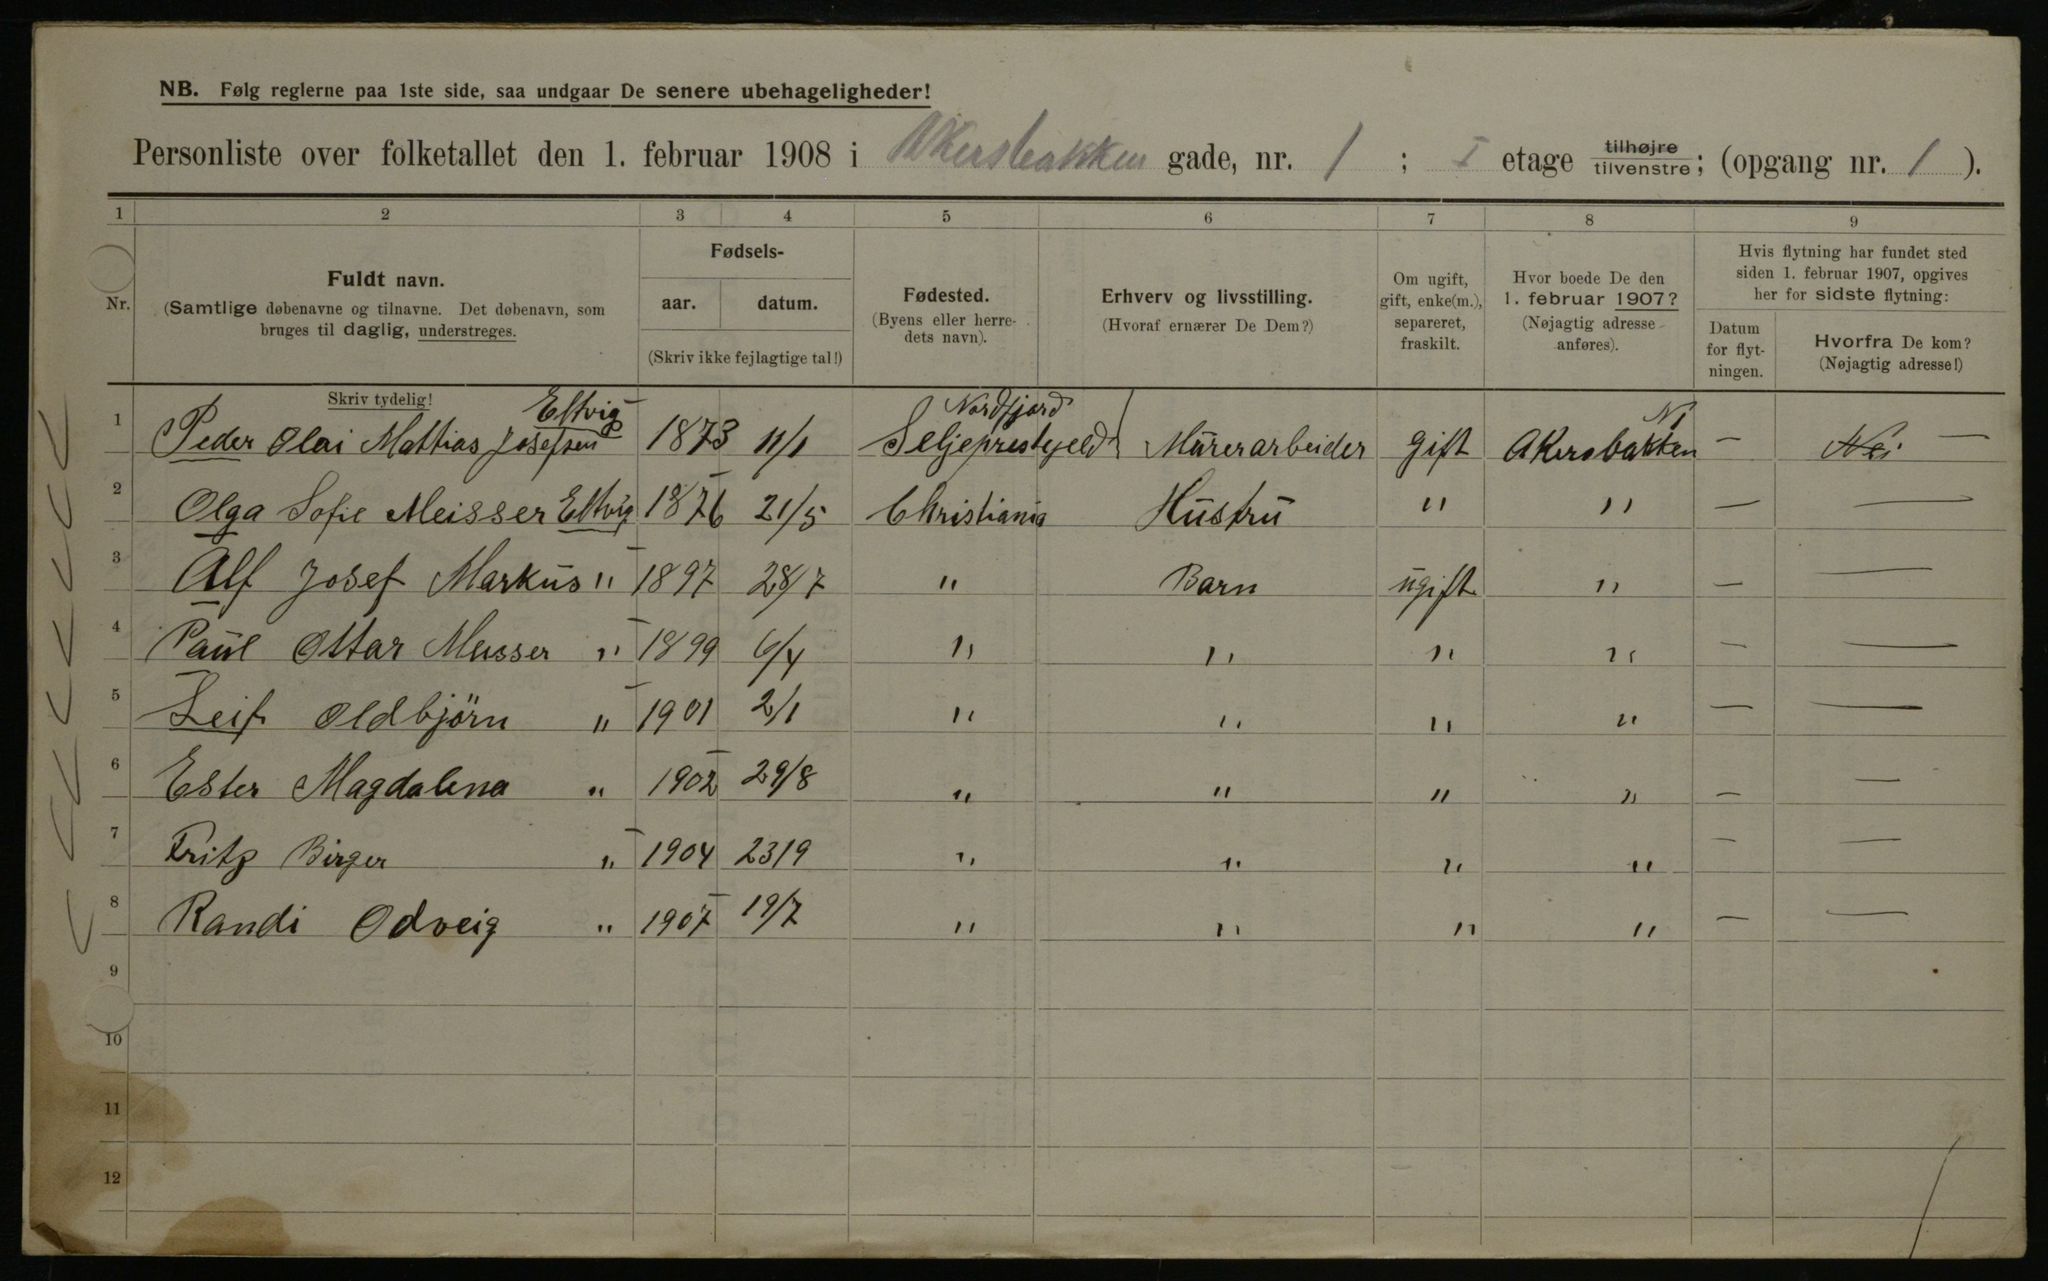 NB. Følg reglerne paa 1ste side, saa undgaar De senere ubehageligheder!
Personliste over folketallet den 1. februar 1908 i Akersbakken gade, nr. 1 ; I etage tilhøjre tilvenstre; (opgang nr. 1 ).
1 2 3 4 5 6 7 8 9
Nr.
Fuldt navn.
(Samtlige døbenavne og tilnavne. Det døbenavn, som
bruges til daglig, understreges.
Skriv tydelig!
Fødsels-
aar. datum.
(Skriv ikke fejlagtige tal!)
Fødested.
(Byens eller herre-
dets navn).
Erhverv og livsstilling.
(Hvoraf ernærer De Dem?)
Om ugift,
gift, enke(m.),
separeret,
fraskilt.
Hvor boede De den
1. februar 1907?
(Nøjagtig adresse
anføres).
Hvis flytning har fundet sted
siden 1. februar 1907, opgives
her for sidste flytning:
Datum
for flyt-
ningen.
Hvorfra De kom?
(Nøjagtig adresse!)
Eltvig Nordfjord N1
1 Peder Olai Mattias Josefsen 1873 11/1 Seljeprestejeld Mürerarbeider gift Akersbakken — Nei —
2 Olga Sofie Meisser Eltvig 1876 21/5 Christiania Hüstrü " " — —
3 Alf Josef Markus " 1897 28/7 " Barn ugift " — —
4 Paul Ottar Meisser " 1899 6/4 " " " " — —
5 Leif Oldbjörn " 1901 2/1 " " " " — —
6 Ester Magdalena " 1902 29/8 " " " " — —
7 Fritz Birger " 1904 23/9 " " " " — —
8 Randi Odveig " 1907 19/7 " " " " — —
9
10
11
12